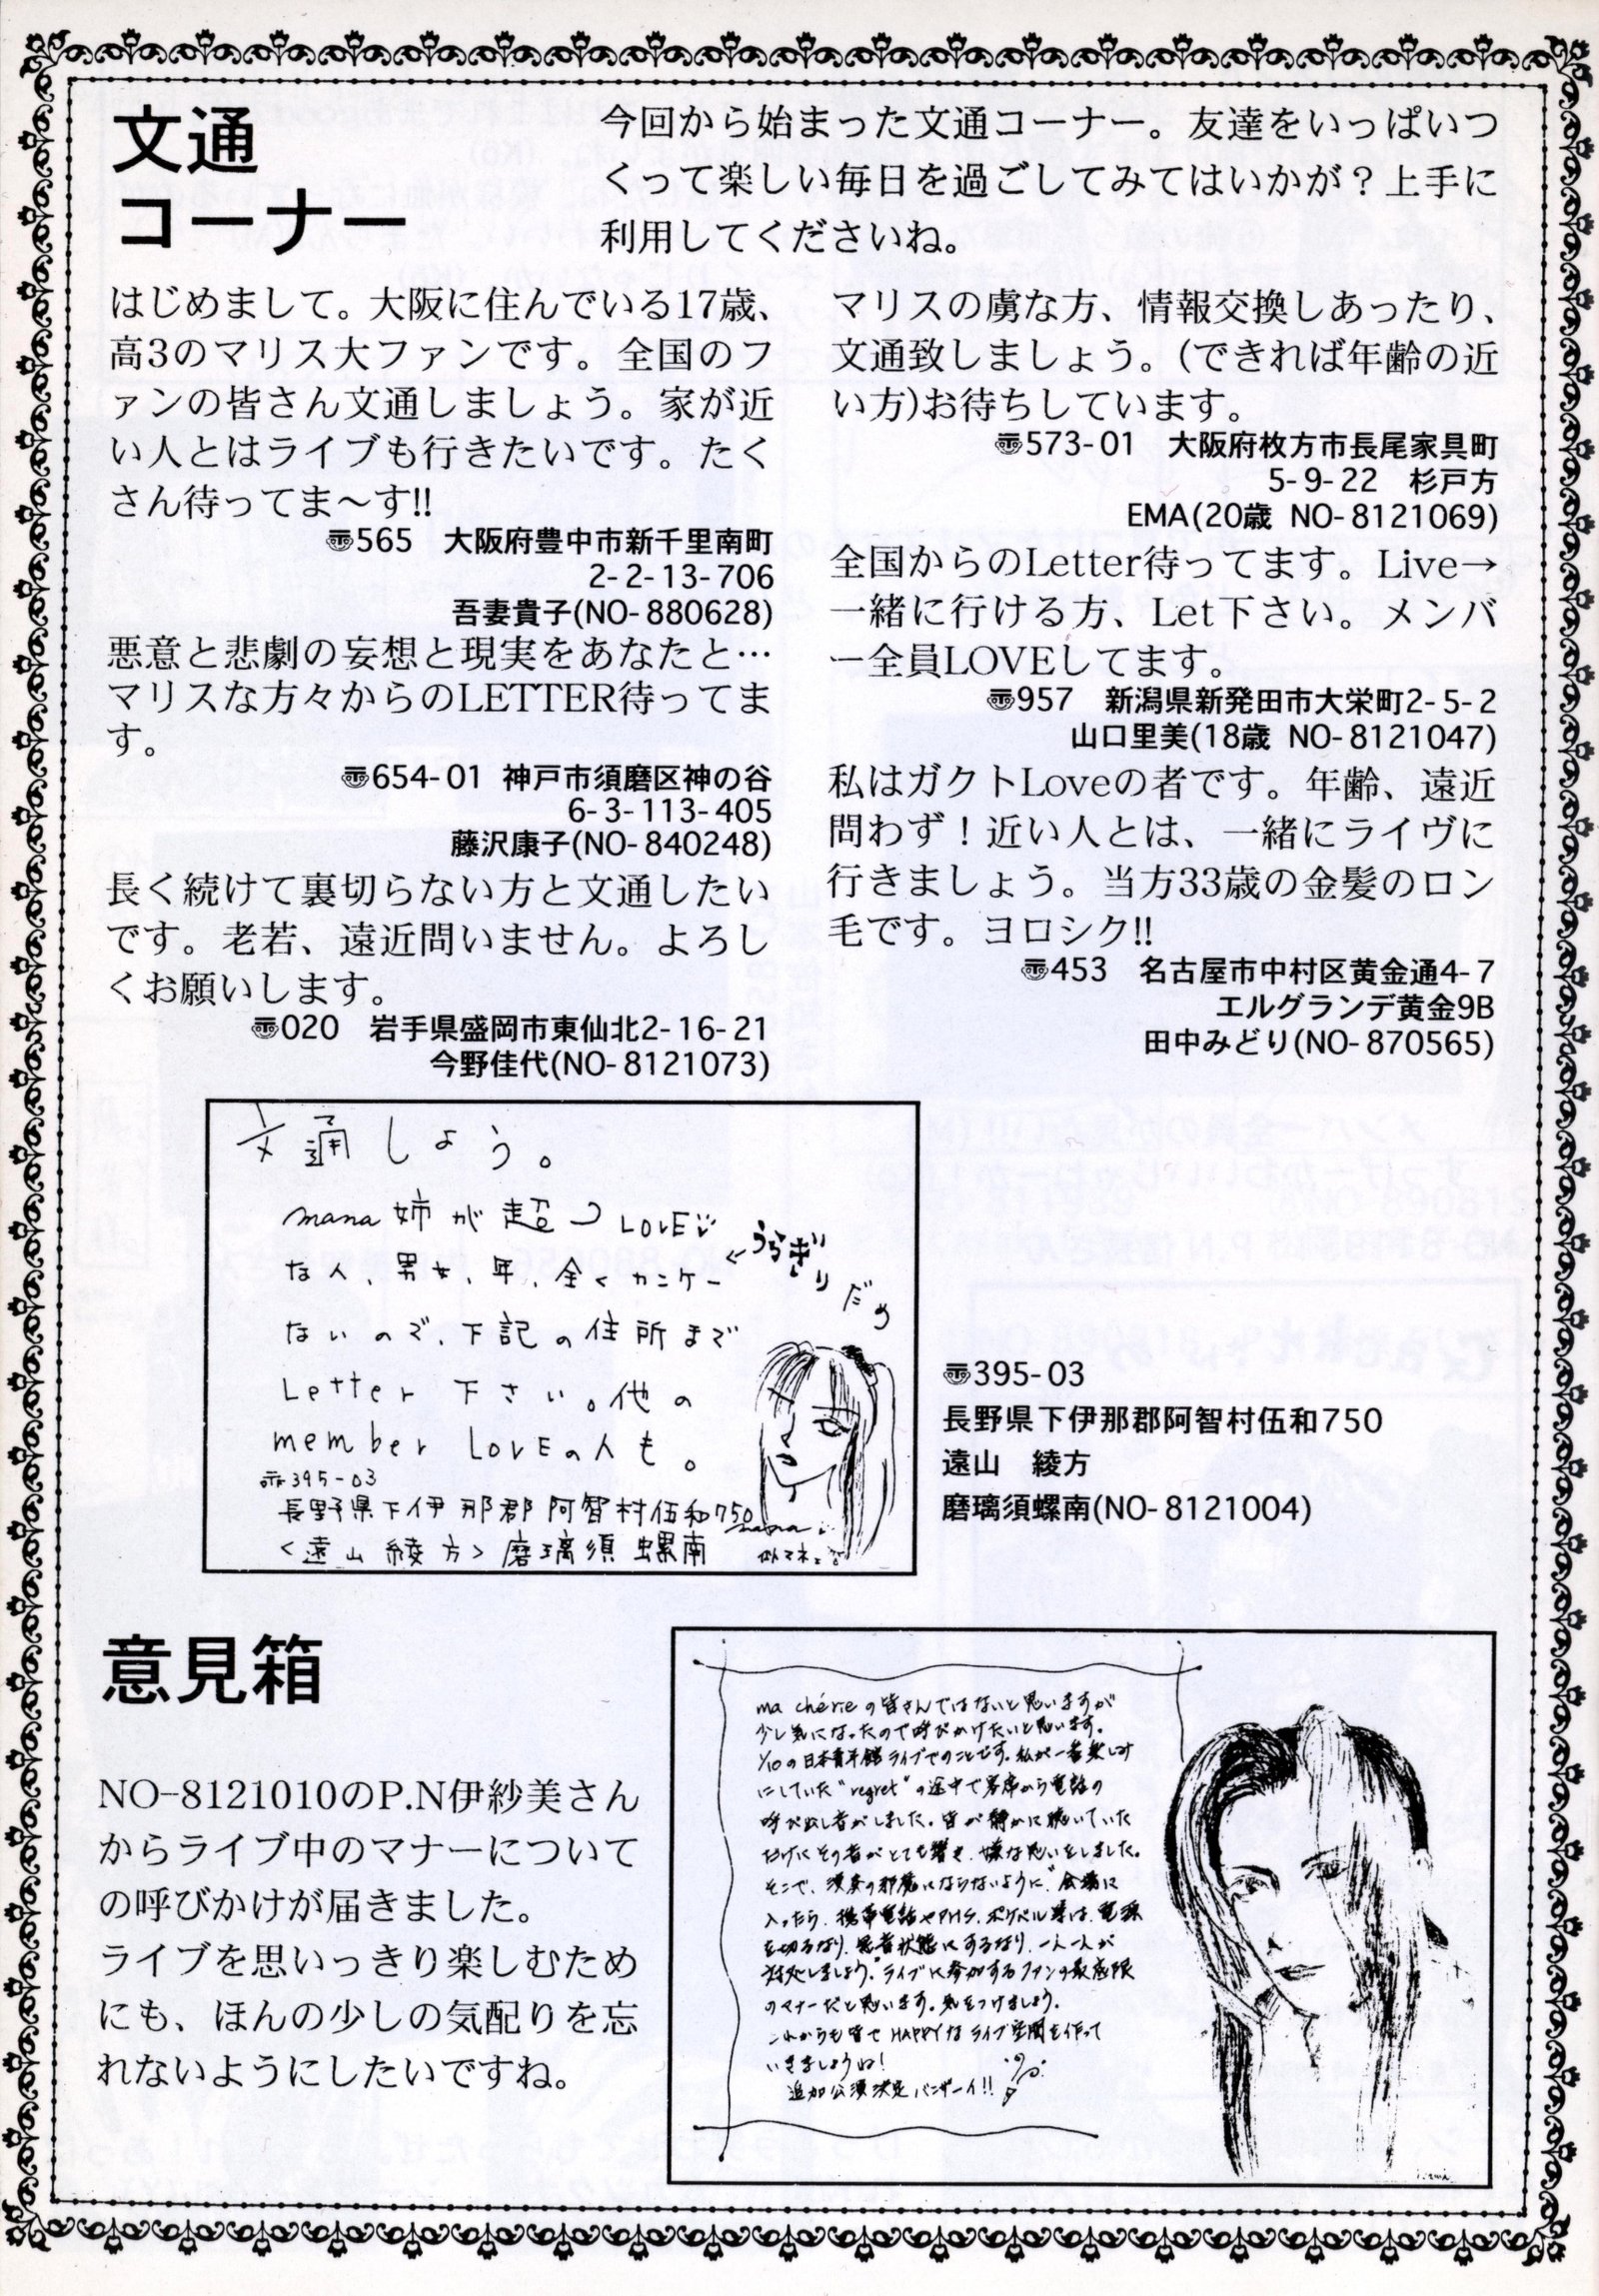 文通
コーナー
今回から始まった文通コーナー。友達をいっぱいつ
くって楽しい毎日を過ごしてみてはいかが？上手に
利用してくださいね。
はじめまして。大阪に住んでいる17歳、
高3のマリス大ファンです。全国のフ
ァンの皆さん文通しましょう。家が近
い人とはライブも行きたいです。たく
さん待ってま〜す!!
〠565　大阪府豊中市新千里南町
2-2-13-706
吾妻貴子(NO-880628)
悪意と悲劇の妄想と現実をあなたと…
マリスな方々からのLETTER待ってま
す。
〠654-01 神戸市須磨区神の谷
6-3-113-405
藤沢康子(NO-840248)
長く続けて裏切らない方と文通したい
です。老若、遠近問いません。よろし
くお願いします。
〠020　岩手県盛岡市東仙北2-16-21
今野佳代(NO-8121073)
マリスの虜な方、情報交換しあったり、
文通致しましょう。(できれば年齢の近
い方)お待ちしています。
〠573-01　大阪府枚方市長尾家具町
5-9-22　杉戸方
EMA(20歳 NO-8121069)
全国からのLetter待ってます。Live→
一緒に行ける方、Let下さい。メンバ
ー全員LOVEしてます。
〠957　新潟県新発田市大栄町2-5-2
山口里美(18歳 NO-8121047)
私はガクトLoveの者です。年齢、遠近
問わず！近い人とは、一緒にライヴに
行きましょう。当方33歳の金髪のロン
毛です。ヨロシク!!
〠453　名古屋市中村区黄金通4-7
エルグランデ黄金9B
田中みどり(NO-870565)
文通しよう。
mana姉が超つLOVE
な人、男女、年、全くカンケー
←うらぎりだめ
ないので、下記の住所まで
Letter 下さい。他の
member LOVEの人も。
〒395-03
長野県下伊那郡阿智村伍和750
<遠山綾方> 磨璃須螺南
mana
似てネェ
〠395-03
長野県下伊那郡阿智村伍和750
遠山　綾方
磨璃須螺南(NO-8121004)
意見箱
NO-8121010のP.N伊紗美さん
からライブ中のマナーについて
の呼びかけが届きました。
ライブを思いっきり楽しむため
にも、ほんの少しの気配りを忘
れないようにしたいですね。
ma chérieの皆さんではないと思いますが
少し気になったので呼びかけたいと思います。
1/10の日本青年館ライブでのことです。私が一番楽しみ
にしていた"regret"の途中で客席から電話の
呼び出し音がしました。皆が静かに聴いていた
だけにその音がとても響き、嫌な思いをしました。
そこで、演奏の邪魔にならないように、会場に
入ったら、携帯電話やPHS、ポケベル等は、電源
を切るなり、無音状態にするなり、一人一人が
対処しましょう。ライブに参加するファンの最低限
のマナーだと思います。気をつけましょう。
これからも皆でHAPPYなライブ空間を作って
いきましょうね!
追加公演決定バンザーイ!!